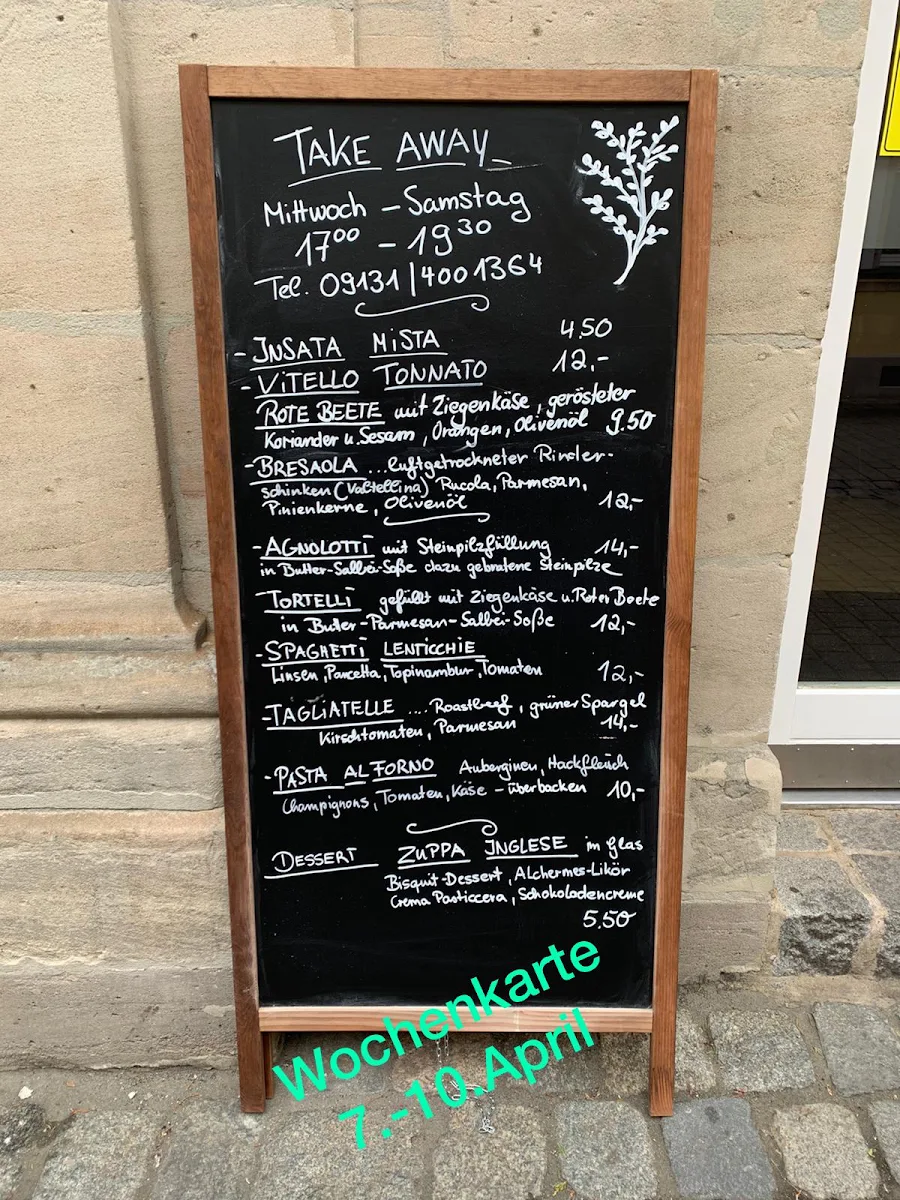 TAKE AWAY_
Mittwoch – Samstag
17⁰⁰ – 19³⁰
Tel. 09131/4001364
- INSATA MISTA 4.50
- VITELLO TONNATO 12,-
ROTE BEETE mit Ziegenkäse, gerösteter
Koriander u. Sesam, Orangen, Olivenöl 9.50
- BRESAOLA ...luftgetrockneter Rinder-
schinken (Valtellina) Rucola, Parmesan,
Pinienkerne, Olivenöl 12,-
- AGNOLOTTI mit Steinpilzfüllung 14,-
in Butter-Salbei-Soße dazu gebratene Steinpilze
TORTELLI gefüllt mit Ziegenkäse u. Roter Beete
in Butter-Parmesan-Salbei-Soße 12,-
- SPAGHETTI LENTICCHIE
Linsen, Pancetta, Topinambur, Tomaten 12,-
- TAGLIATELLE .... Roastbeef, grüner Spargel
Kirschtomaten, Parmesan 14,-
- PASTA AL FORNO Auberginen, Hackfleisch
Champignons, Tomaten, Käse – überbacken 10,-
DESSERT ZUPPA INGLESE im Glas
Bisquit-Dessert, Alchermes-Likör
Crema Pasticcera, Schokoladencreme
5.50
Wochenkarte
7.-10.April